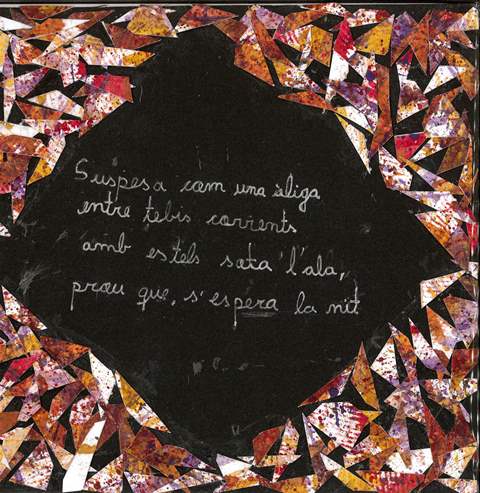 Suspesa com una àliga
entre tebis corrents
amb estels sota l'ala,
prou que, s'espera la nit